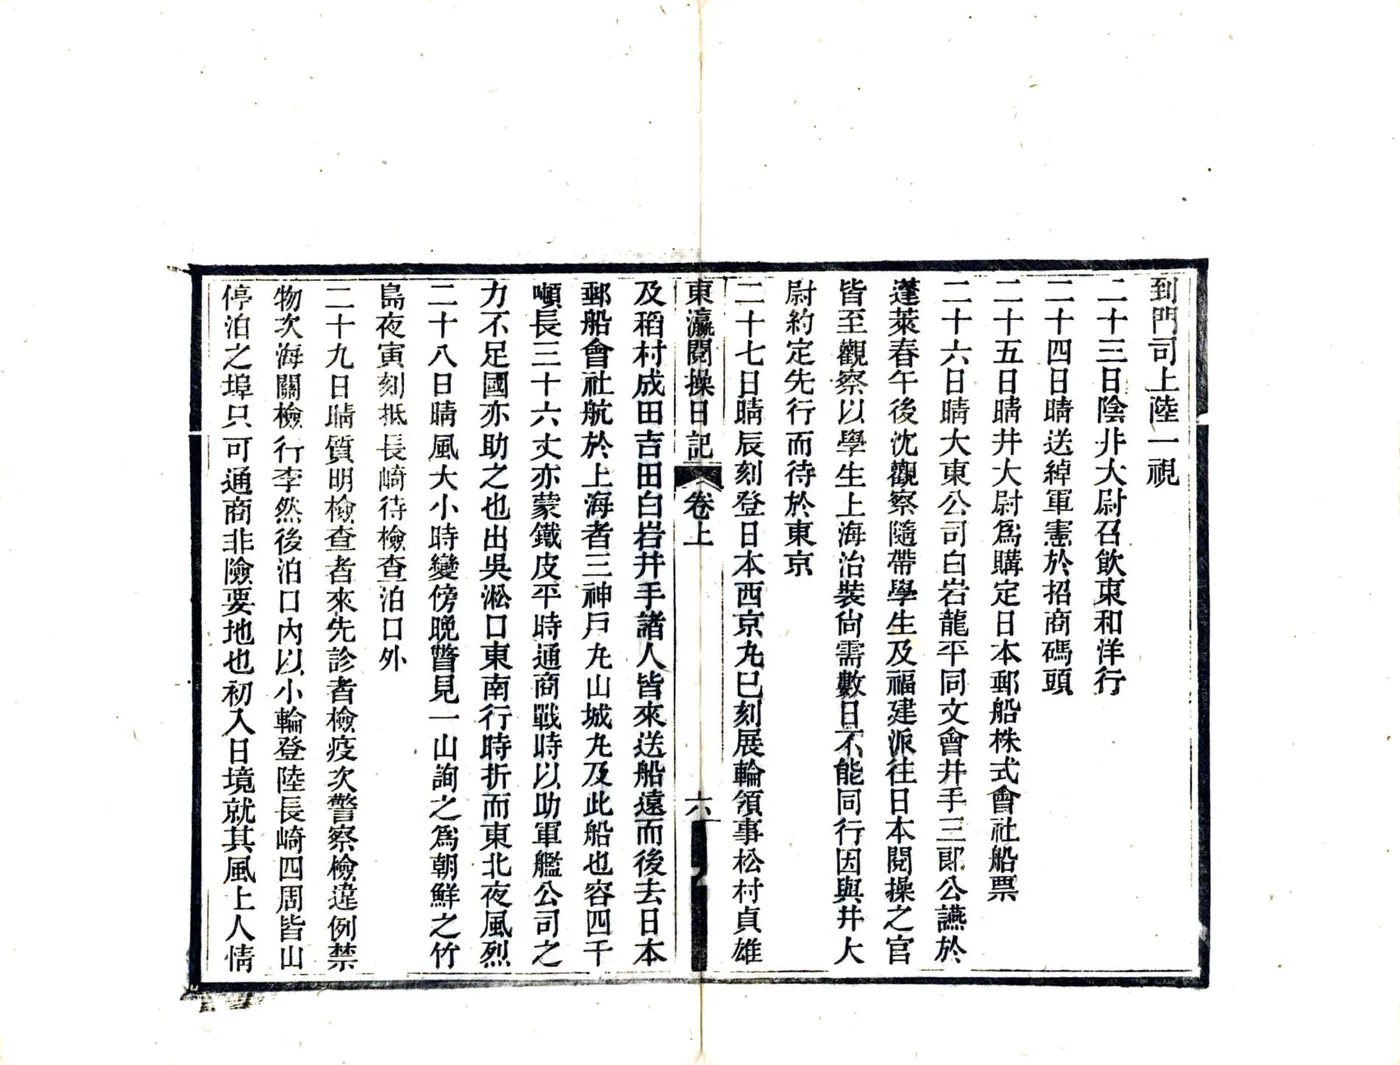 到門司上陸一視
二十三日陰井大尉召飲東和洋行
二十四日晴送綽軍憲於招商碼頭
二十五日晴井大尉爲購定日本郵船株式會社船票
二十六日晴大東公司白岩龍平同文會井手三郎公讌於
蓬萊春午後沈觀察隨帶學生及福建派往日本閱操之官
皆至觀察以學生上海治裝尙需數日不能同行因與井大
尉約定先行而待於東京
二十七日晴辰刻登日本西京丸巳刻展輪領事松村貞雄
東瀛閱操日記 卷上 六
及稻村成田吉田白岩井手諸人皆來送船遠而後去日本
郵船會社航於上海者三神戶丸山城丸及此船也容四千
噸長三十六丈亦蒙鐵皮平時通商戰時以助軍艦公司之
力不足國亦助之也出吳淞口東南行時折而東北夜風烈
二十八日晴風大小時變傍晚瞥見一山詢之爲朝鮮之竹
島夜寅刻抵長崎待檢查泊口外
二十九日晴質明檢查者來先診者檢疫次警察檢違例禁
物次海關檢行李然後泊口內以小輪登陸長崎四周皆山
停泊之埠只可通商非險要地也初入日境就其風土人情